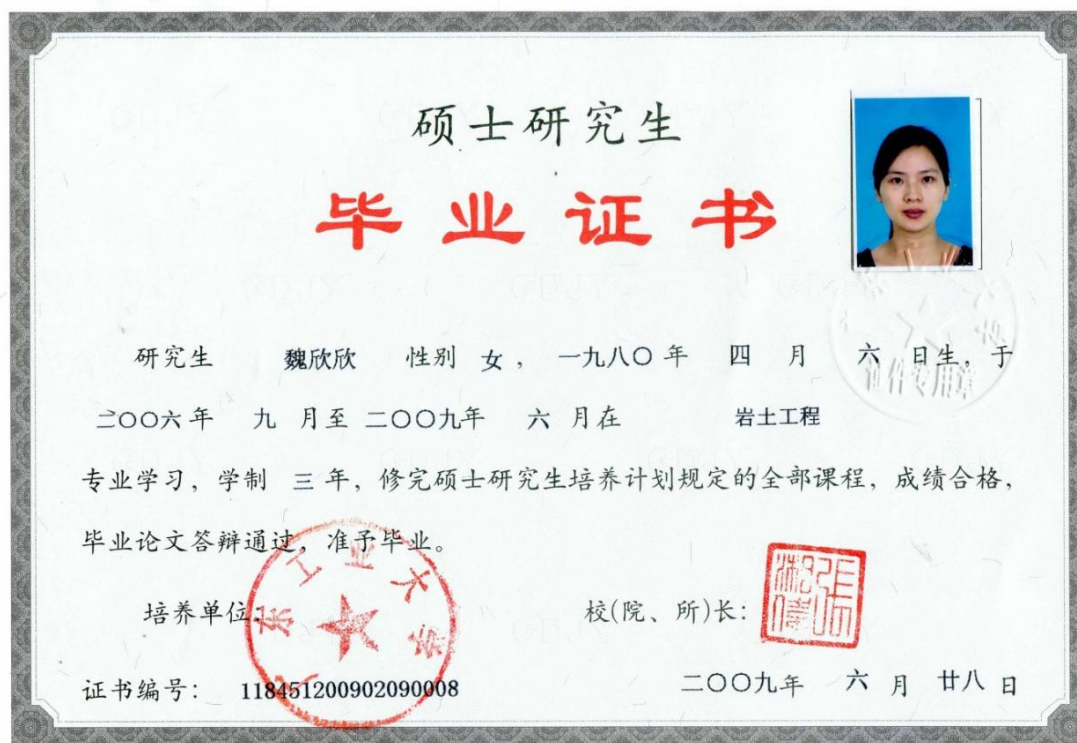 硕士研究生
毕业证书
研究生 魏欣欣 性别 女, 一九八〇年 四 月 六 日生, 于
二〇〇六年 九 月至 二〇〇九年 六 月在 岩土工程
专业学习, 学制 三 年, 修完硕士研究生培养计划规定的全部课程, 成绩合格,
毕业论文答辩通过, 准予毕业。
广东工业大学
培养单位:
校(院、所)长:
证书编号: 118451200902090008
二〇〇九年 六 月 廿八 日
证件专用章